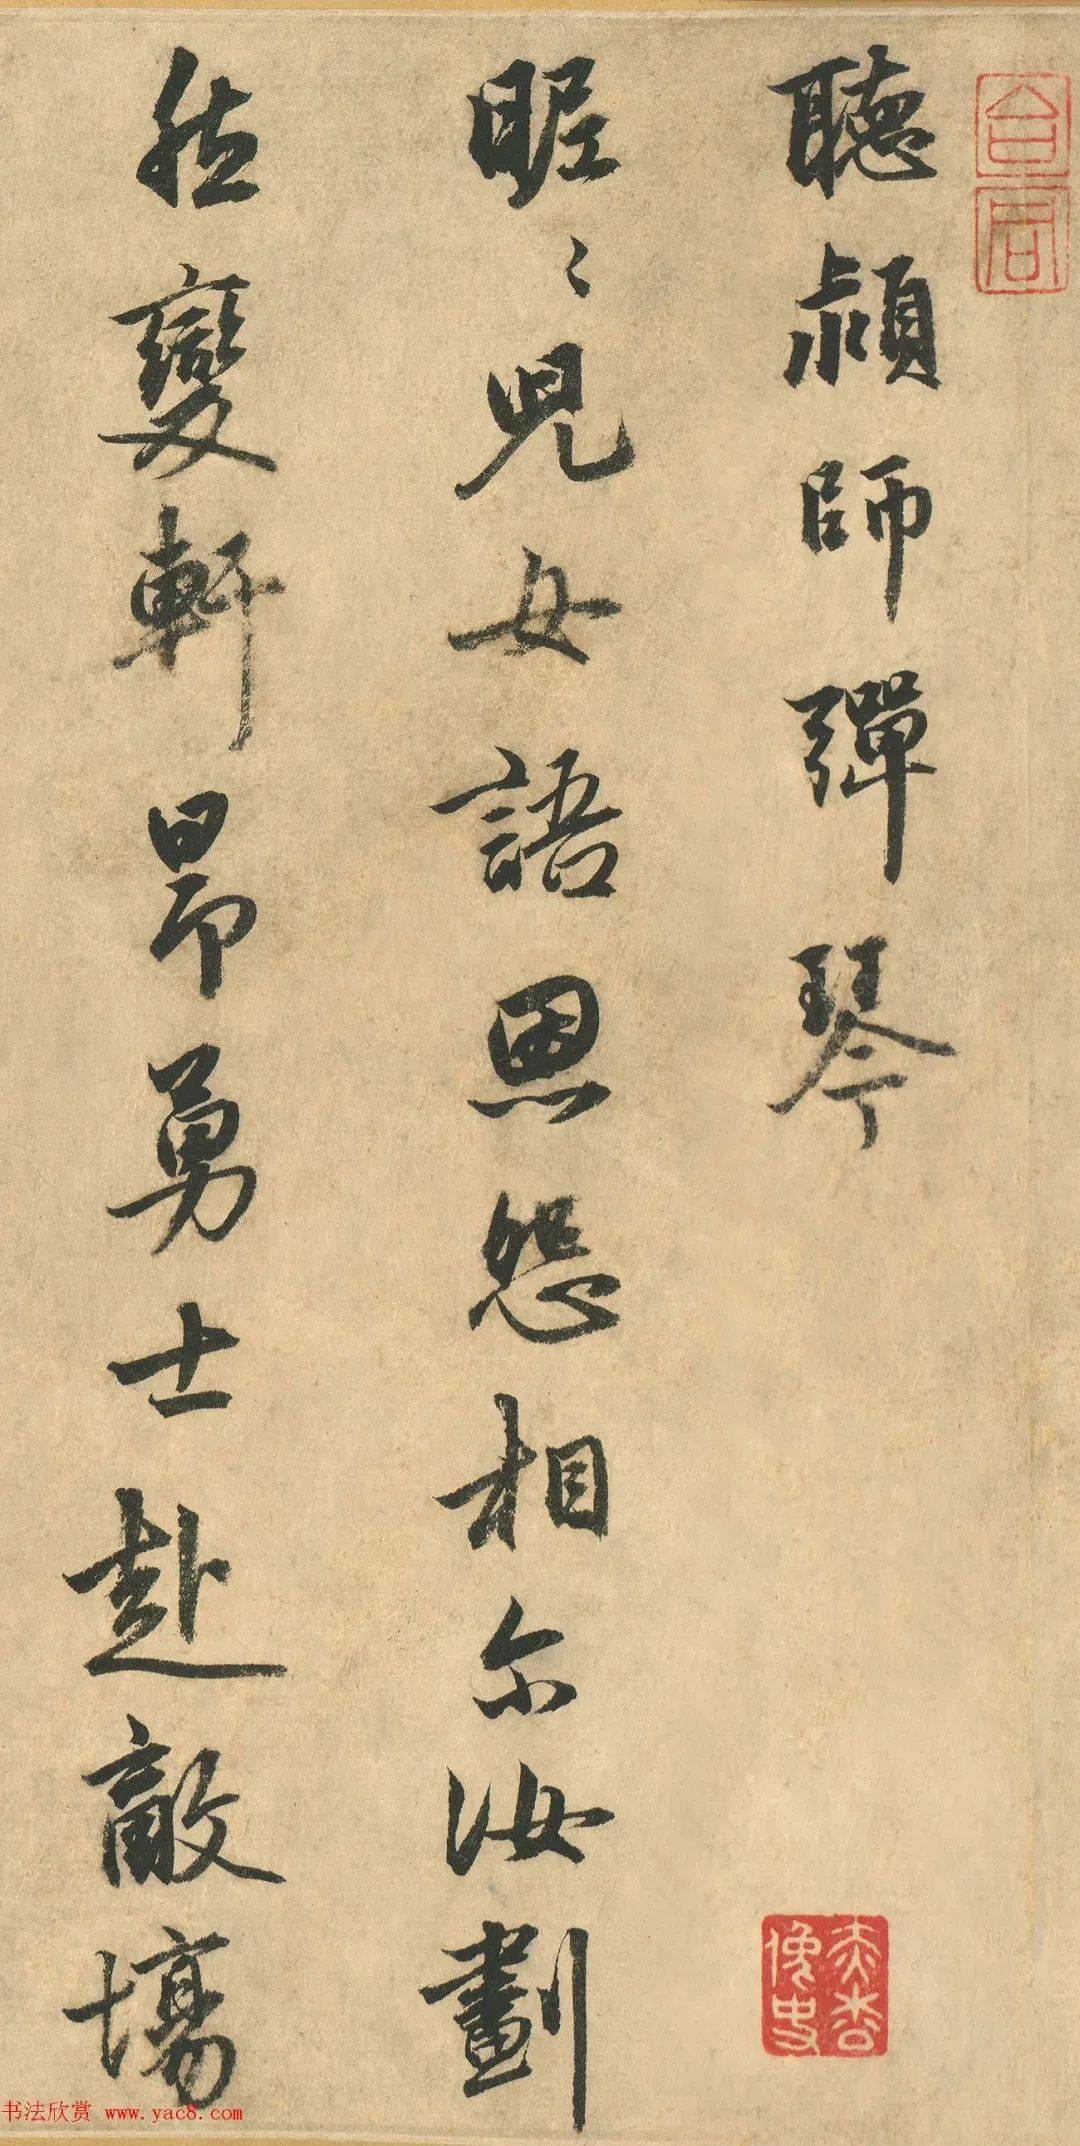 聽潁師彈琴
昵々兒女語恩怨相尔汝劃
然變軒昂勇士赴敵場
书法欣赏 www.yac8.com